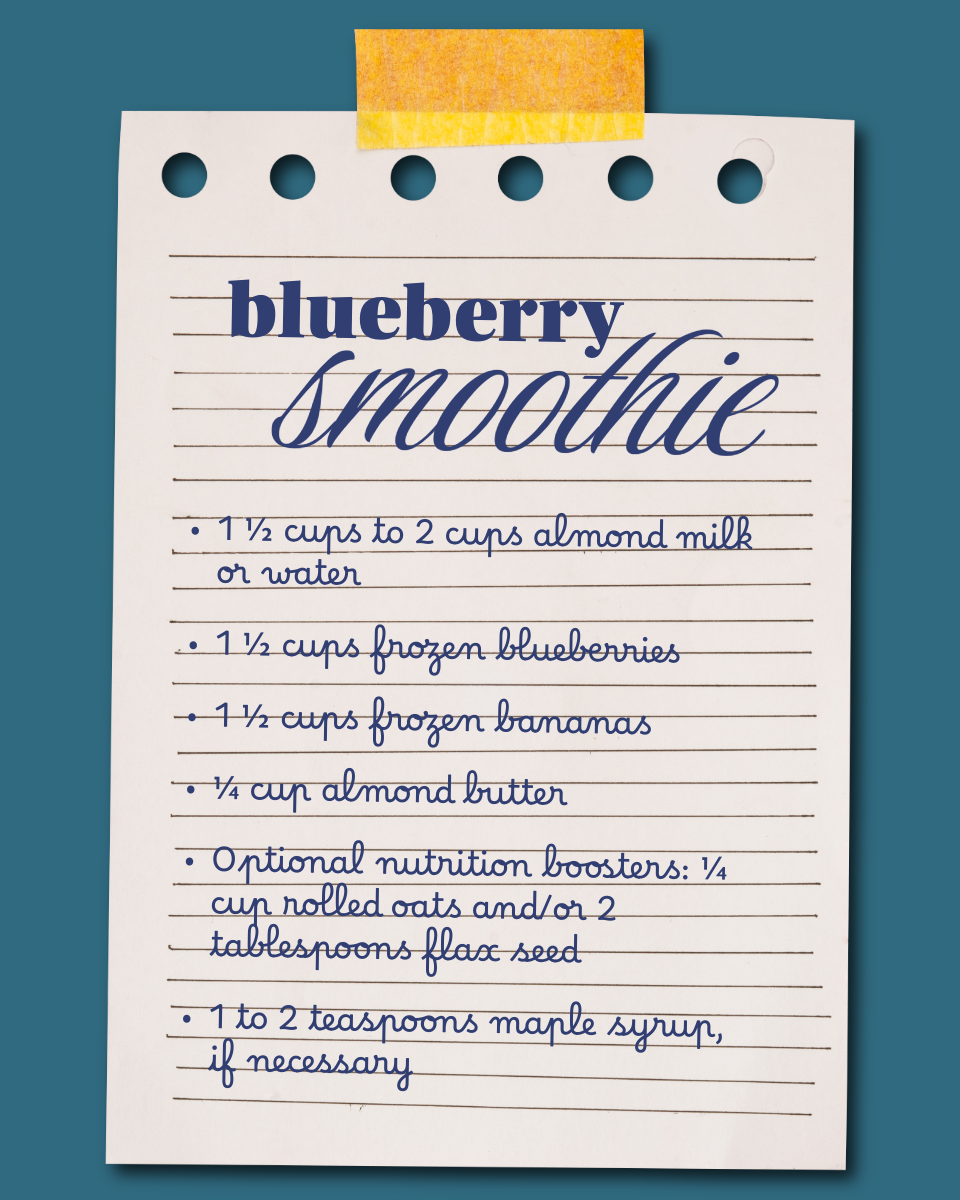 blueberry
smoothie
• 1 ½ cups to 2 cups almond milk
or water
• 1 ½ cups frozen blueberries
• 1 ½ cups frozen bananas
• ¼ cup almond butter
• Optional nutrition boosters: ¼
cup rolled oats and/or 2
tablespoons flax seed
• 1 to 2 teaspoons maple syrup,
if necessary